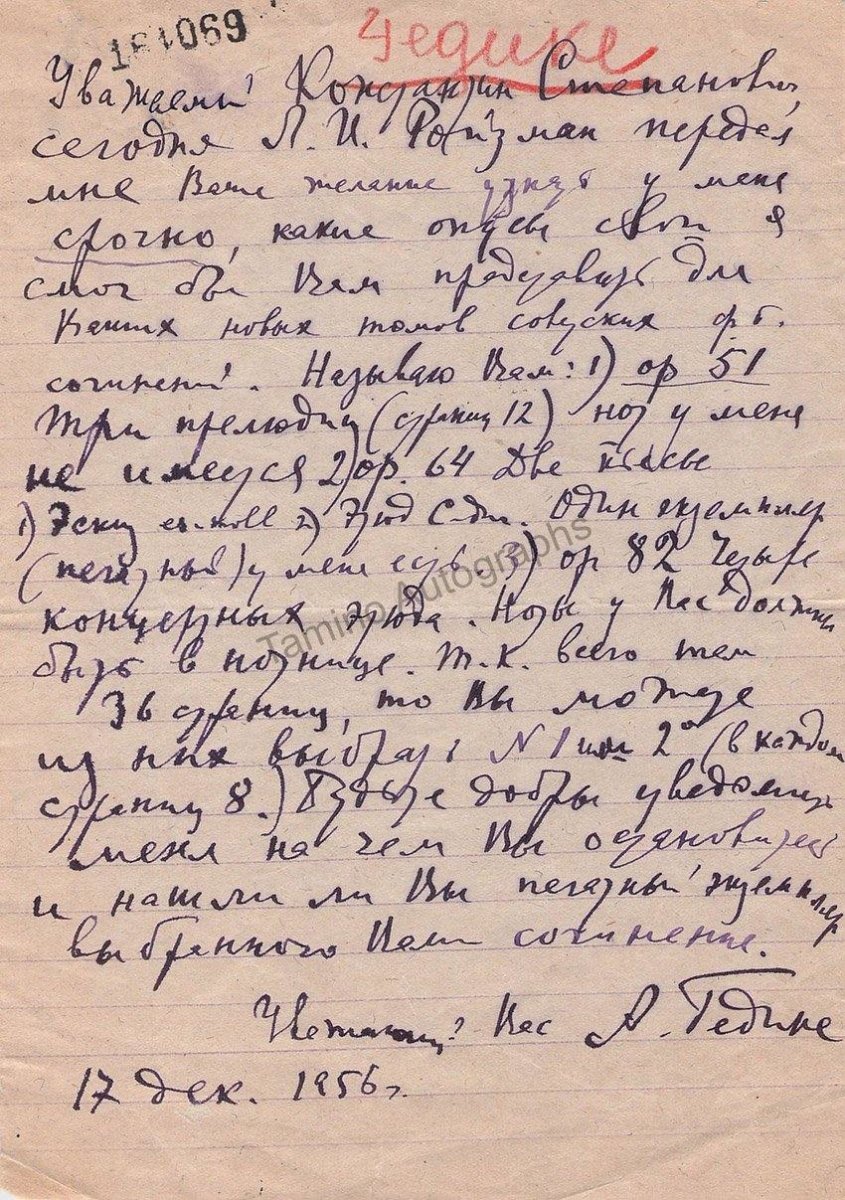 181069
Гедике
Уважаемый Константин Степанович,
сегодня Л. И. Ройзман передал
мне Ваше желание узнать у меня
срочно, какие опусы свои я
смог бы Вам представить для
Ваших новых томов советских ф.п.
сочинений. Называю Вам: 1) ор 51
Три прелюдии (страниц 12) нот у меня
не имеется 2) ор. 64 Две пьесы
1) Эскиз es-moll 2) Этюд C-dur. Один экземпляр
(печатный) у меня есть. 3) ор 82 Четыре
концертных этюда. Ноты у Вас должны
быть в нотнице. Т.к. всего там
36 страниц, то Вы можете
из них выбрать N 1 или 2º (в каждом
страниц 8.) Будьте добры уведомить
меня на чем Вы остановитесь
и нашли ли Вы печатный экземпляр
выбранного Вами сочинение.
Уважающий Вас А. Гедике
17 дек. 1956 г.
Tamino Autographs